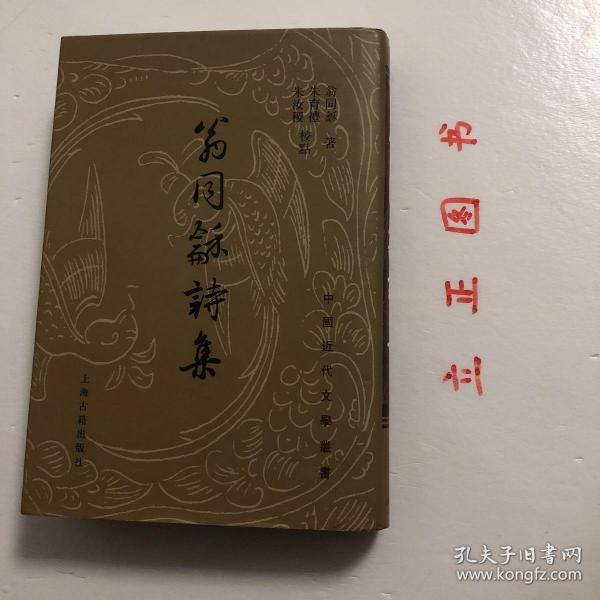 翁同龢 著
朱育禮
朱汝稷 校點
翁同龢詩集
中國近代文學叢書
上海古籍出版社
立正图书
孔夫子旧书网
www.kongfz.com